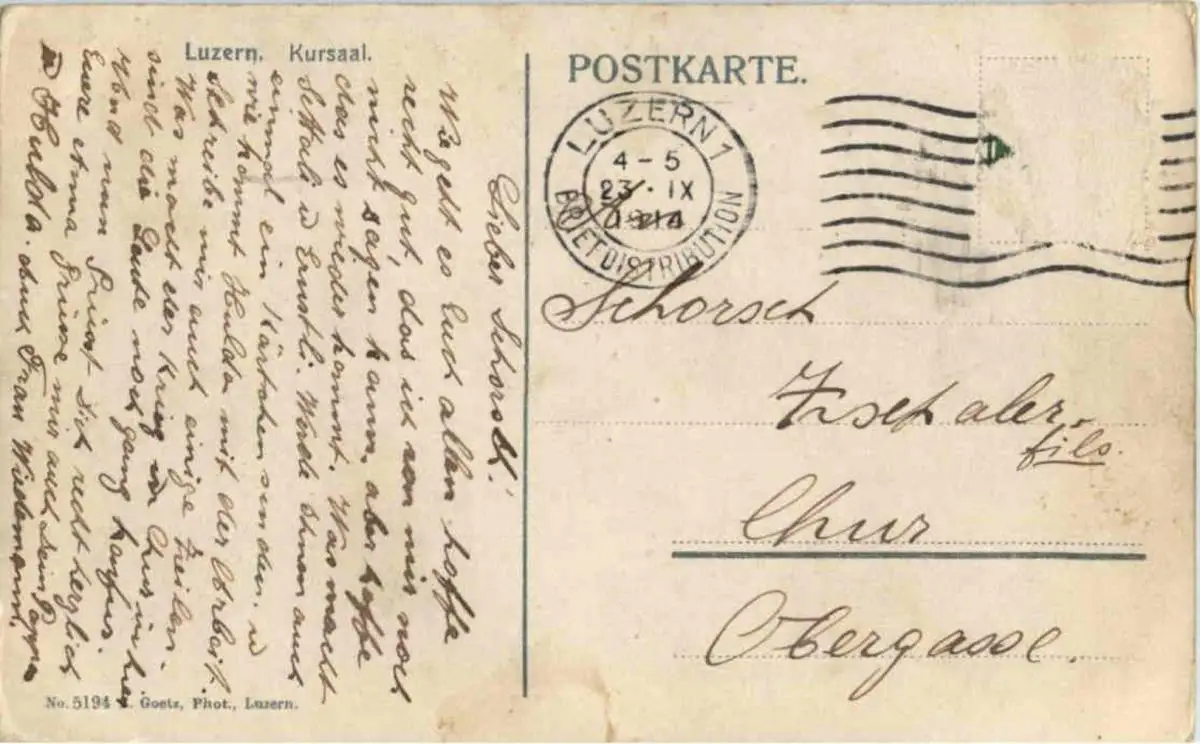 Luzern. Kursaal.
POSTKARTE.
LUZERN 1
4-5
23. IX
1914
BRIEF DISTRIBUTION
Lieber Schorsch!
Wie geht es Euch allen hoffe
recht gut, das ich von mir noch
nicht sagen kann, aber hoffe
das es wieder kommt. Was macht
Settali u Ernstli. Werde Ihnen auch
einmal ein Kärtchen senden. u
wie kommt Hulda mit der Arbeit.
Schreibe mir auch einige Zeilen.
Was macht der Krieg in Chur
sind die Leute noch ganz
Und nun Grüsst Dich recht herzlich
Euere Grüsse mir auch Dein Pappa
u Hulda. auch Frau Wiedemann,
Schorsch
Zschaler
fils.
Chur
Obergasse.
No. 5194 E. Goetz, Phot., Luzern.